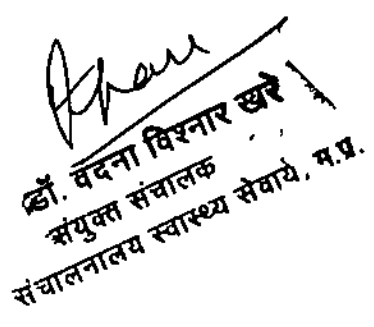 डॉ. वदना विश्नार खरे
संयुक्त संचालक
संचालनालय स्वास्थ्य सेवाये, म.प्र.